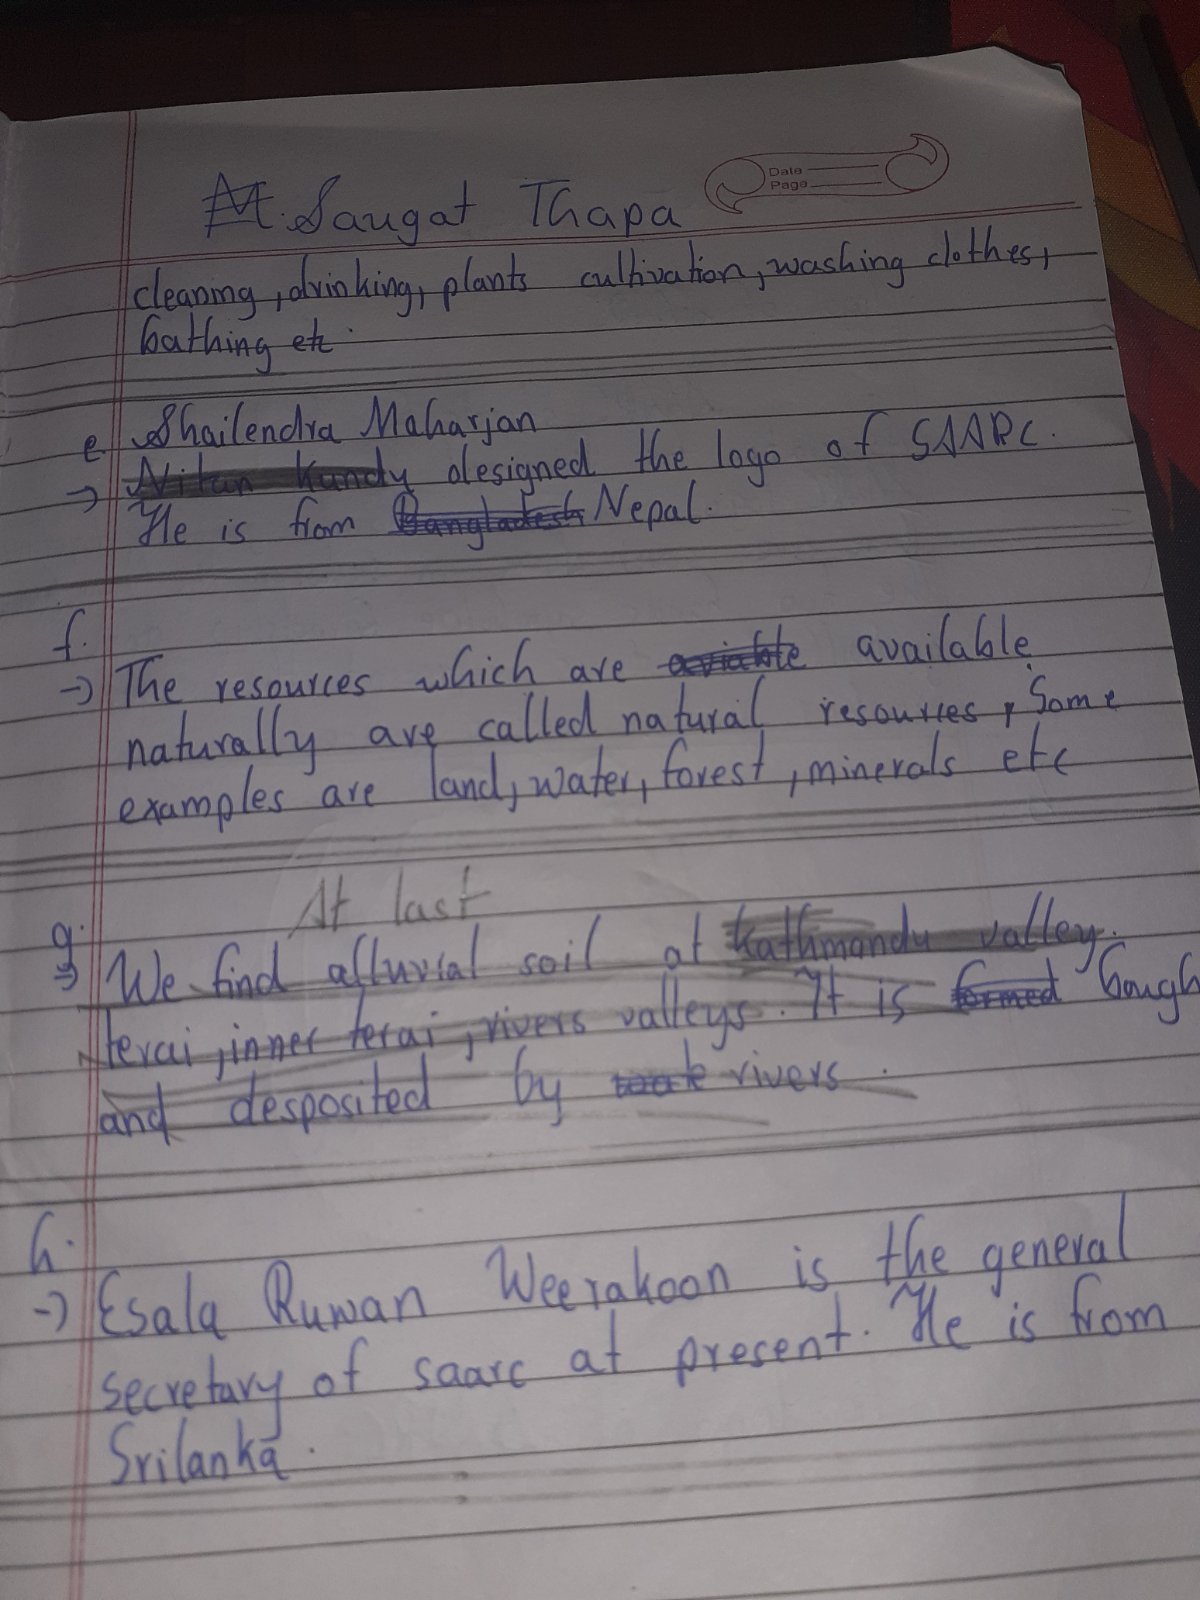 M. Saugat Thapa
Date
Page
cleaning, drinking, plants cultivation, washing clothes,
bathing etc.
e. Shailendra Maharjan
→ Nitun Kundy designed the logo of SAARC.
He is from Bangladesh Nepal.
f.
→ The resources which are aviable available
naturally are called natural resources, Some
examples are land, water, forest, minerals etc
At last
g.
→ We find alluvial soil at Kathmandu valley.
terai, inner terai, rivers valleys. It is formed bough
and desposited by rivers.
h.
→ Esala Ruwan Weerakoon is the general
secretary of saarc at present. He is from
Srilanka.